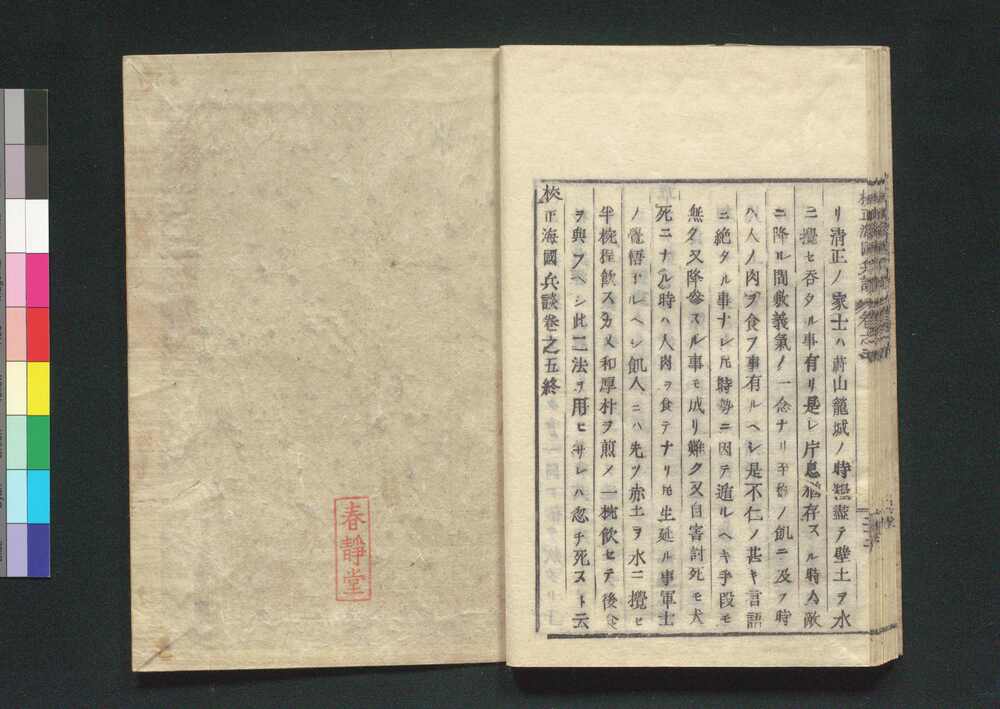 リ清正ノ家士ハ蔚山籠城ノ時糧盡テ壁土ヲ水
ニ攪セ呑タル事有リ是レ片息猶存スル時ハ敵
ニ降ル間敷義氣ノ一念ナリ平ノ飢ニ及フ時
ハ人ノ肉ヲ食フ事有ルヘシ是不仁ノ甚キ言語
ニ絶タル事ナレ𪜈時勢ニ因テ遁ルヘキ手段モ
無ク又降參スル事モ成リ難ク又自害討死モ犬
死ニナル時ハ人肉ヲ食テナリ𪜈生延ル事軍士
ノ覺悟ナルヘシ飢人ニハ先ツ赤土ヲ水ニ攪セ
半椀程飲スカ又和厚朴ヲ煎メ一椀飲セテ後食
ヲ與フヘシ此二法ヲ用ヒサレハ忽チ死スト云
校正海國兵談卷之五終
春靜堂